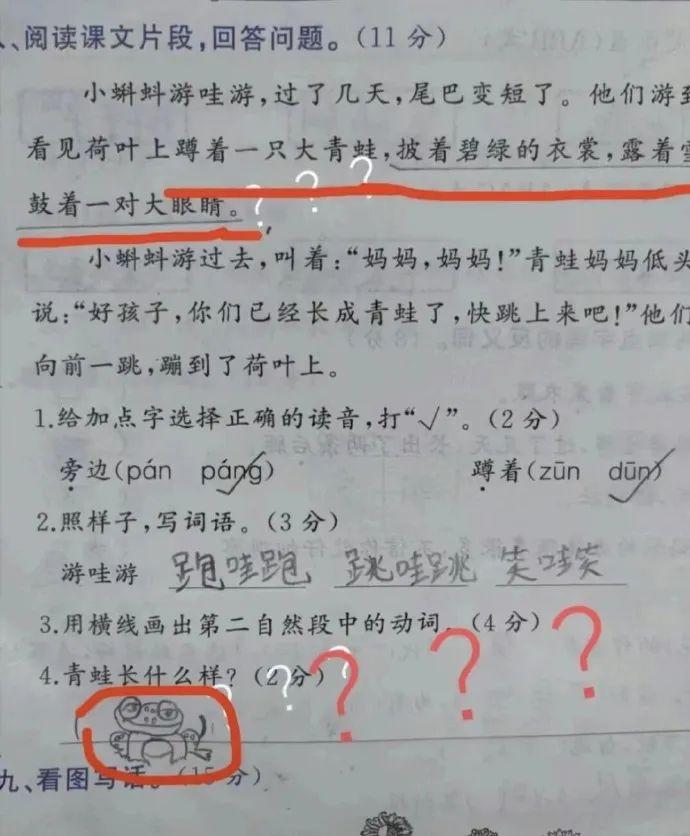 、阅读课文片段,回答问题。(11分)
小蝌蚪游哇游,过了几天,尾巴变短了。他们游到
看见荷叶上蹲着一只大青蛙,披着碧绿的衣裳,露着雪
鼓着一对大眼睛。
???
小蝌蚪游过去,叫着:“妈妈,妈妈!”青蛙妈妈低头
说:“好孩子,你们已经长成青蛙了,快跳上来吧!”他们
向前一跳,蹦到了荷叶上。
1.给加点字选择正确的读音,打“√”。(2分)
旁边(pán páng√) 蹲着(zūn dūn√)
2.照样子,写词语。(3分)
游哇游 跑哇跑 跳哇跳 笑哇笑
3.用横线画出第二自然段中的动词.(4分)
4.青蛙长什么样?(2分)
??? ???
九、看图写话。(15分)